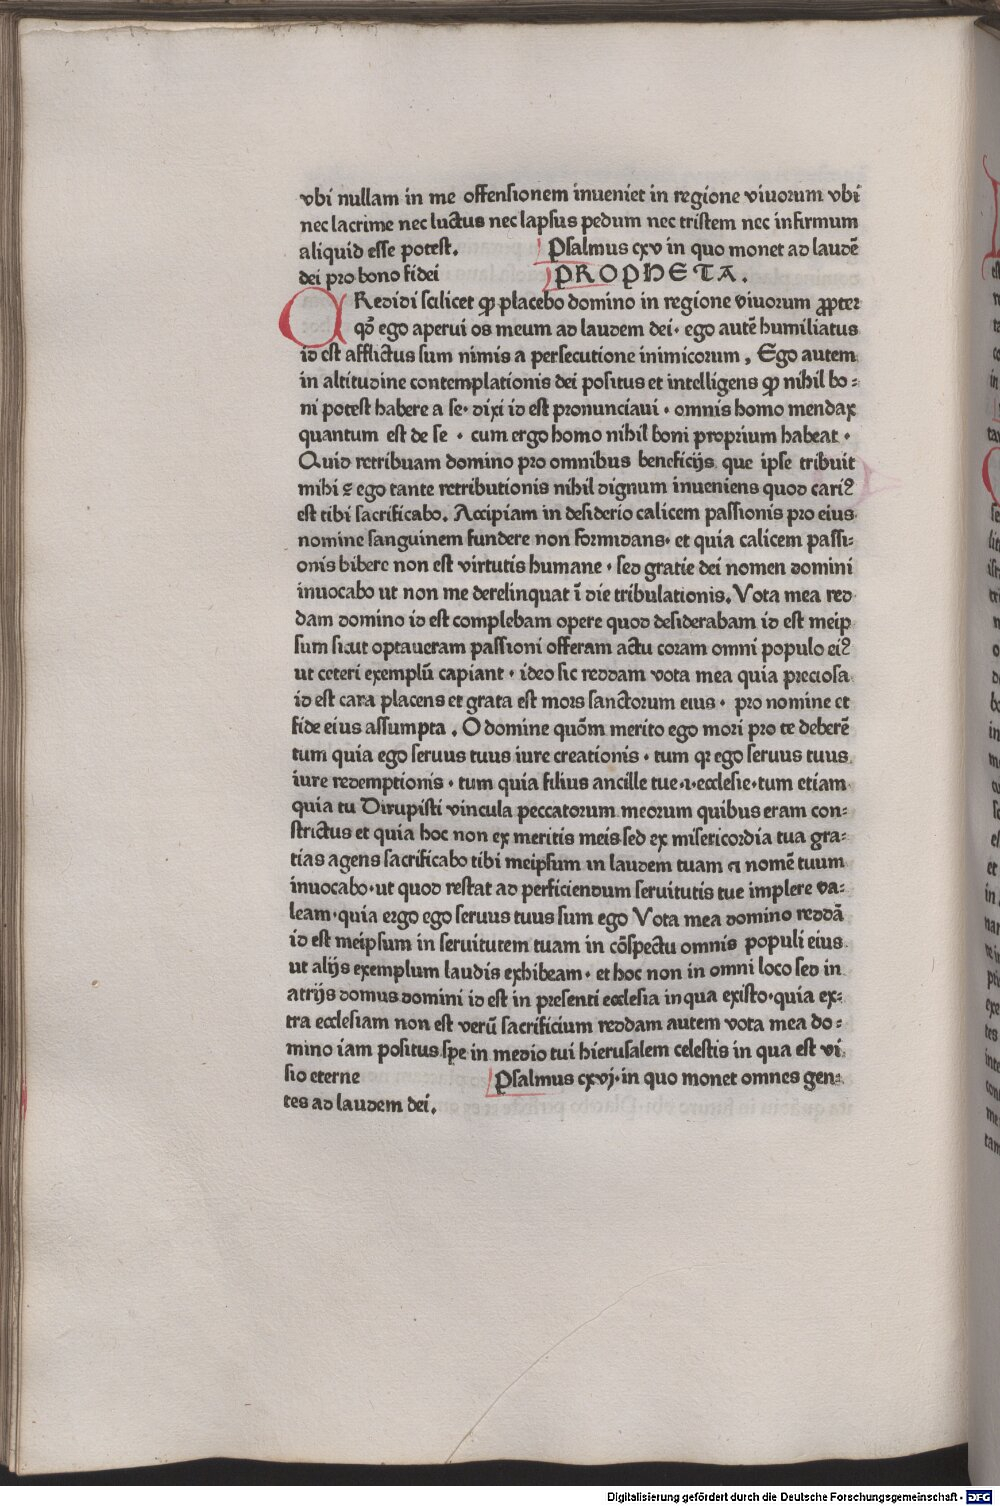 vbi nullam in me offensionem inueniet in regione viuorum vbi
nec lacrime nec luctus nec lapsus pedum nec tristem nec infirmum
aliquid esse potest. Psalmus cxv in quo monet ad laudē
dei pro bono fidei PROPHETA.
CRedidi scilicet ꝙ placebo domino in regione viuorum ꝓpter
qđ ego aperui os meum ad laudem dei· ego autē humiliatus
id est afflictus sum nimis a persecutione inimicorum, Ego autem
in altitudine contemplationis dei positus et intelligens ꝙ nihil bo⸗
ni potest habere a se· dixi id est pronunciaui · omnis homo mendax
quantum est de se · cum ergo homo nihil boni proprium habeat ·
Quid retribuam domino pro omnibus beneficijs que ipse tribuit
mihi ⁊ ego tante retributionis nihil dignum inueniens quod cariꝰ
est tibi sacrificabo. Accipiam in desiderio calicem passionis pro eius
nomine sanguinem fundere non formidans· et quia calicem passi⸗
onis bibere non est virtutis humane · sed gratie dei nomen domini
inuocabo ut non me derelinquat ī die tribulationis. Vota mea red
dam domino id est complebam opere quod desiderabam id est meip
sum sicut optaueram passioni offeram actu coram omni populo eiꝰ
ut ceteri exemplū capiant · ideo sic reddam vota mea quia preciosa
id est cara placens et grata est mors sanctorum eius · pro nomine et
fide eius assumpta . O domine quōm merito ego mori pro te deberē
tum quia ego seruus tuus iure creationis · tum qꝛ ego seruus tuus
iure redemptionis · tum quia filius ancille tue ·ı· ecclesie · tum etiam
quia tu Dirupisti vincula peccatorum meorum quibus eram con⸗
strictus et quia hoc non ex meritis meis sed ex misericordia tua gra⸗
tias agens sacrificabo tibi meipsum in laudem tuam ⁊ nomē tuum
inuocabo · ut quod restat ad perficiendum seruitutis tue implere va⸗
leam · quia ergo ego seruus tuus sum ego Vota mea domino reddā
id est meipsum in seruitutem tuam in cōspectu omnis populi eius
ut alijs exemplum laudis exhibeam · et hoc non in omni loco sed in
atrijs domus domini id est in presenti ecclesia in qua existo · quia ex⸗
tra ecclesiam non est verū sacrificium reddam autem vota mea do⸗
mino iam positus spe in medio tui hierusalem celestis in qua est vi
sio eterne Psalmus cxvj · in quo monet omnes gen⸗
tes ad laudem dei.
Digitalisierung gefördert durch die Deutsche Forschungsgemeinschaft - DFG